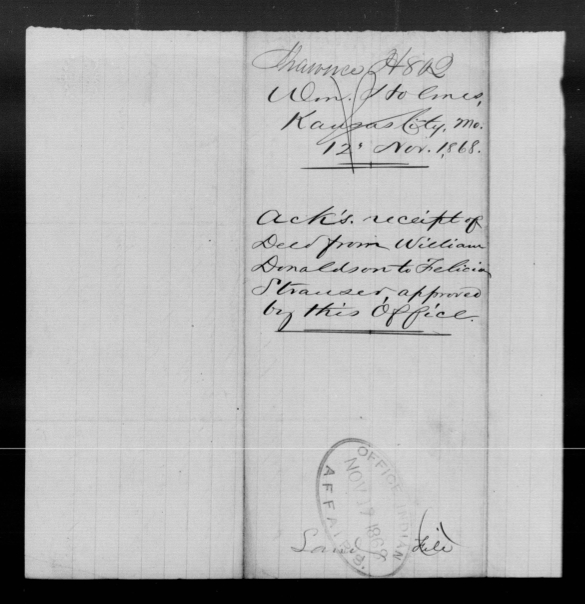 Shawnee H812
Wm. Holmes,
Kansas City, Mo.
12" Nov. 1868.
Ack's. receipt of
Deed from William
Donaldson to Felicia
Strauser, approved
by this Office.
OFFICE INDIAN
AFFAIRS
NOV 17 1868
Land
File